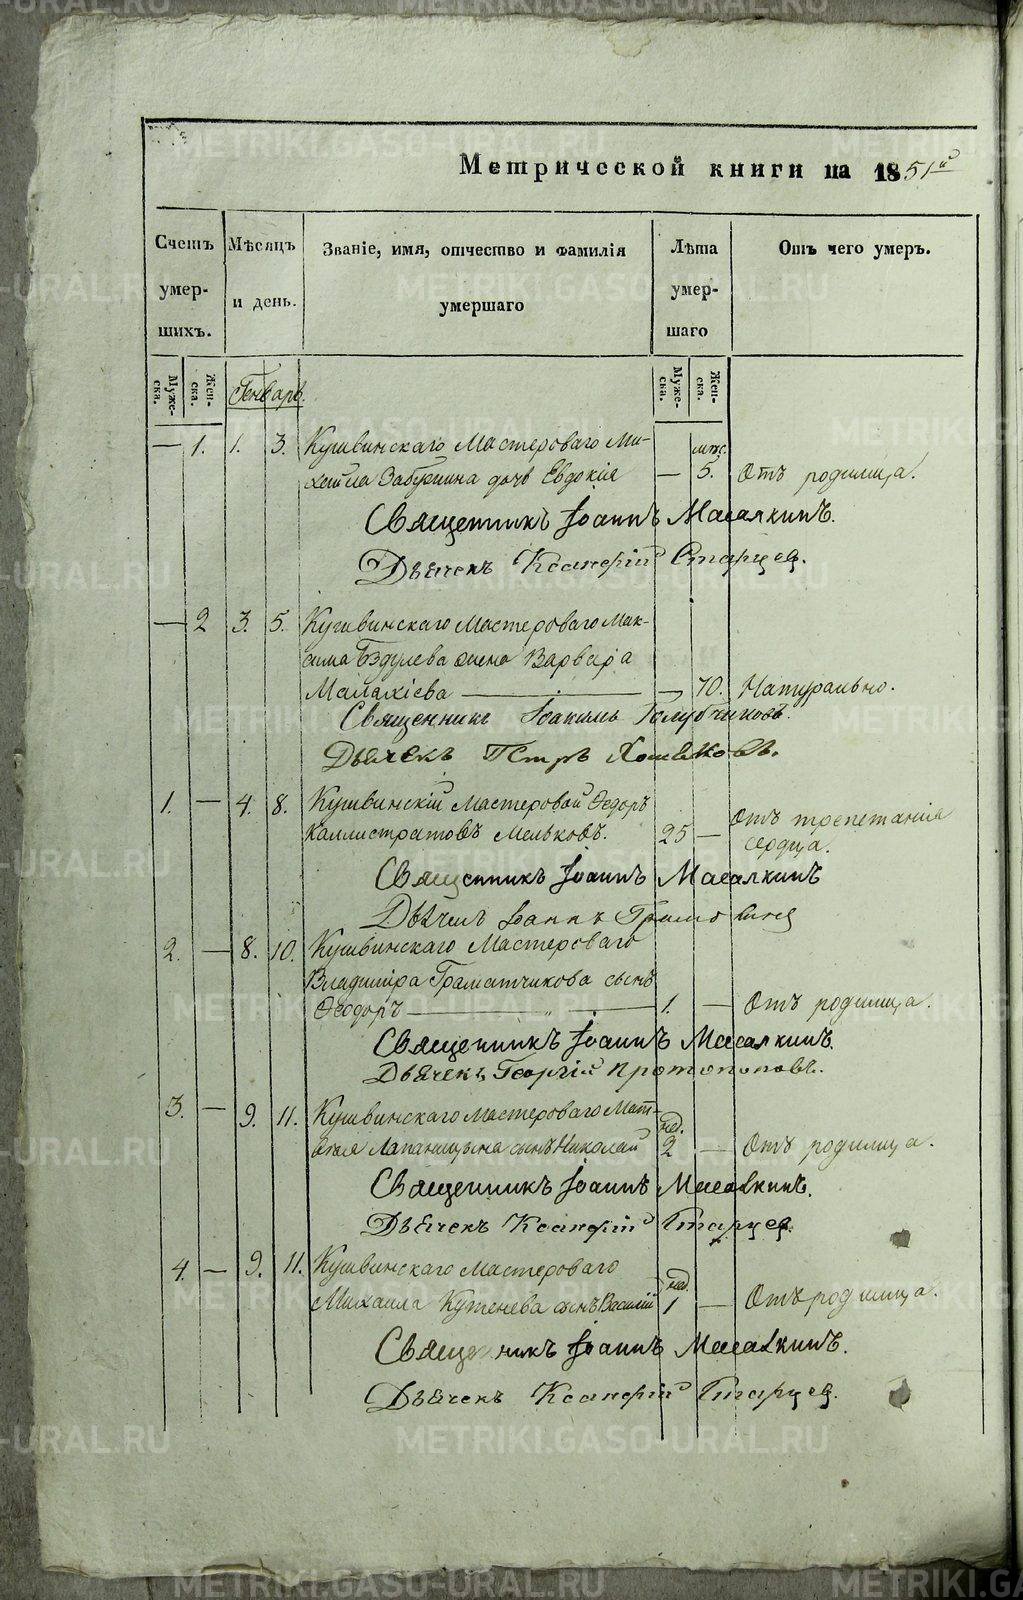 Метрической книги на 1851й
Счетъ умер-шихъ.
Мѣсяцъ и день.
Званіе, имя, отчество и фамилія умершаго
Лѣта умер-шаго
Отъ чего умеръ.
Муже-ска.
Жен-ска.
Генварь.
Муже-ска.
Жен-ска.
— 1. 1. 3. Кушвинскаго Мастероваго Ми- мѣс.
хаила Забурнина дочь Евдокія — 5. Отъ родимца.
Священникъ Іоаннъ Масалкинъ.
Дьячекъ Ксанфій Старцев.
— 2 3. 5. Кушвинскаго Мастероваго Мак-
сима Бздулева жена Варвара
Малахіева — — 70. Натурально.
Священникъ Іоакимъ Голубчиковъ.
Дьячекъ Петръ Хомяковъ.
1. — 4. 8. Кушвинскій Мастеровой Ѳедоръ
Каллистратовъ Мельковъ. 25 — Отъ трепетанія
сердца.
Священникъ Іоаннъ Масалкинъ
Дьячекъ Іоаннъ
2. — 8. 10. Кушвинскаго Мастероваго
Владиміра Граматчикова сынъ
Ѳеодоръ — 1. — Отъ родимца.
Священникъ Іоаннъ Масалкинъ.
Дьячекъ Георгій Протопоповъ.
3. — 9. 11. Кушвинскаго Мастероваго Мат-
вея Лапаницына сынъ Николай нед. 2 — Отъ родимца.
Священникъ Іоаннъ Масалкинъ.
Дьячекъ Ксанфій Старцев.
4. — 9. 11. Кушвинскаго Мастероваго
Михаила Кутенева сынъ Василій нед. 1 — Отъ родимца.
Священникъ Іоаннъ Масалкинъ.
Дьячекъ Ксанфій Старцев.
METRIKI.GASO-URAL.RU